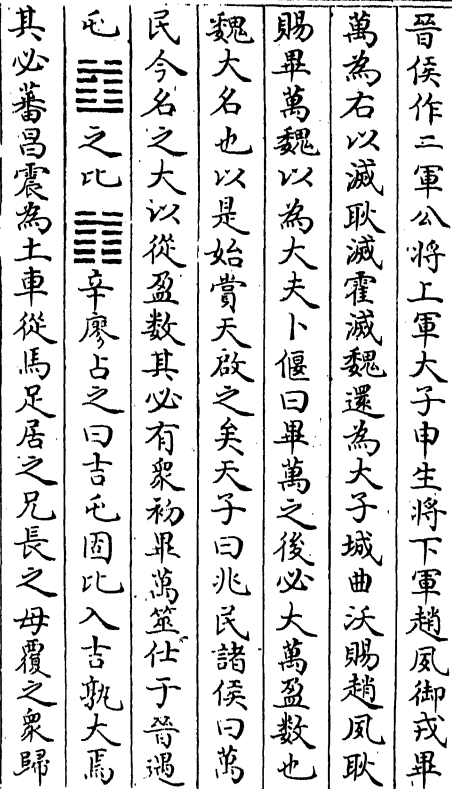 晉侯作二軍公將上軍大子申生將下軍趙夙御戎畢
萬為右以滅耿滅霍滅魏還為大子城曲沃賜趙夙耿
賜畢萬魏以為大夫卜偃曰畢萬之後必大萬盈数也
魏大名也以是始賞天啟之矣天子曰兆民諸侯曰萬
民今名之大以從盈数其必有眾初畢萬筮仕于晉遇
屯䷂之比䷇辛廖占之曰吉屯固比入吉孰大焉
其必蕃昌震為土車從馬足居之兄長之母覆之眾歸